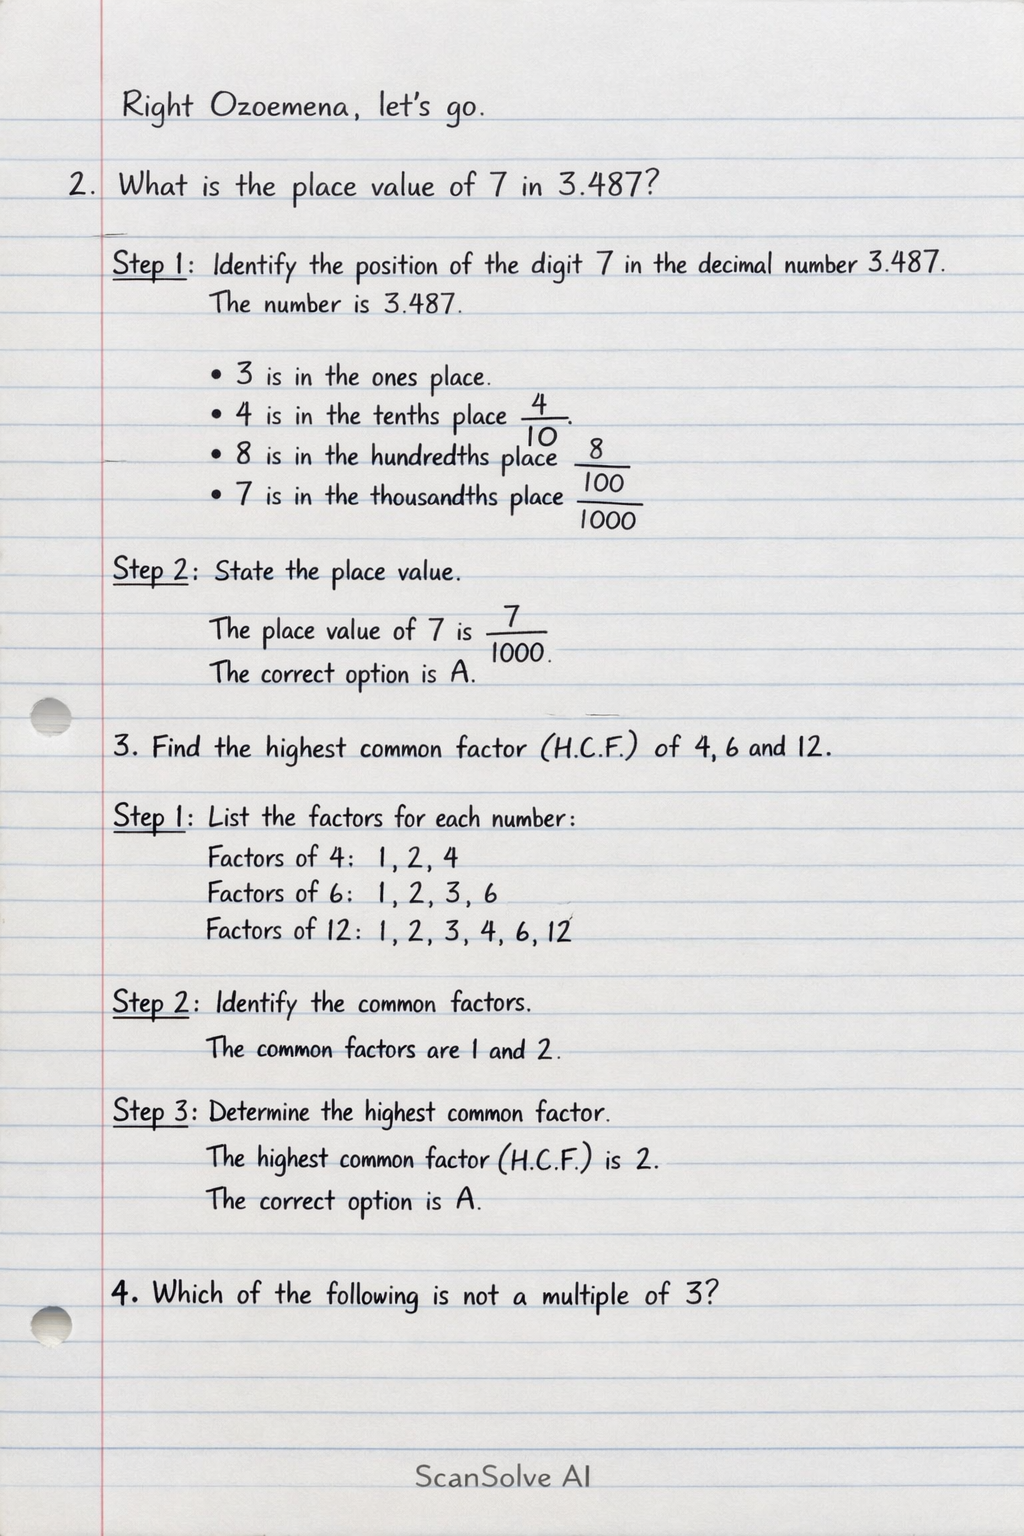 Right Ozoemena, let's go.
2. What is the place value of 7 in 3.487?
Step 1: Identify the position of the digit 7 in the decimal number 3.487.
The number is 3.487.
• 3 is in the ones place.
• 4 is in the tenths place 4/10.
• 8 is in the hundredths place 8/100
• 7 is in the thousandths place /1000
Step 2: State the place value.
The place value of 7 is 7/1000.
The correct option is A.
3. Find the highest common factor (H.C.F.) of 4, 6 and 12.
Step 1: List the factors for each number:
Factors of 4: 1, 2, 4
Factors of 6: 1, 2, 3, 6
Factors of 12: 1, 2, 3, 4, 6, 12
Step 2: Identify the common factors.
The common factors are 1 and 2.
Step 3: Determine the highest common factor.
The highest common factor (H.C.F.) is 2.
The correct option is A.
4. Which of the following is not a multiple of 3?
ScanSolve AI